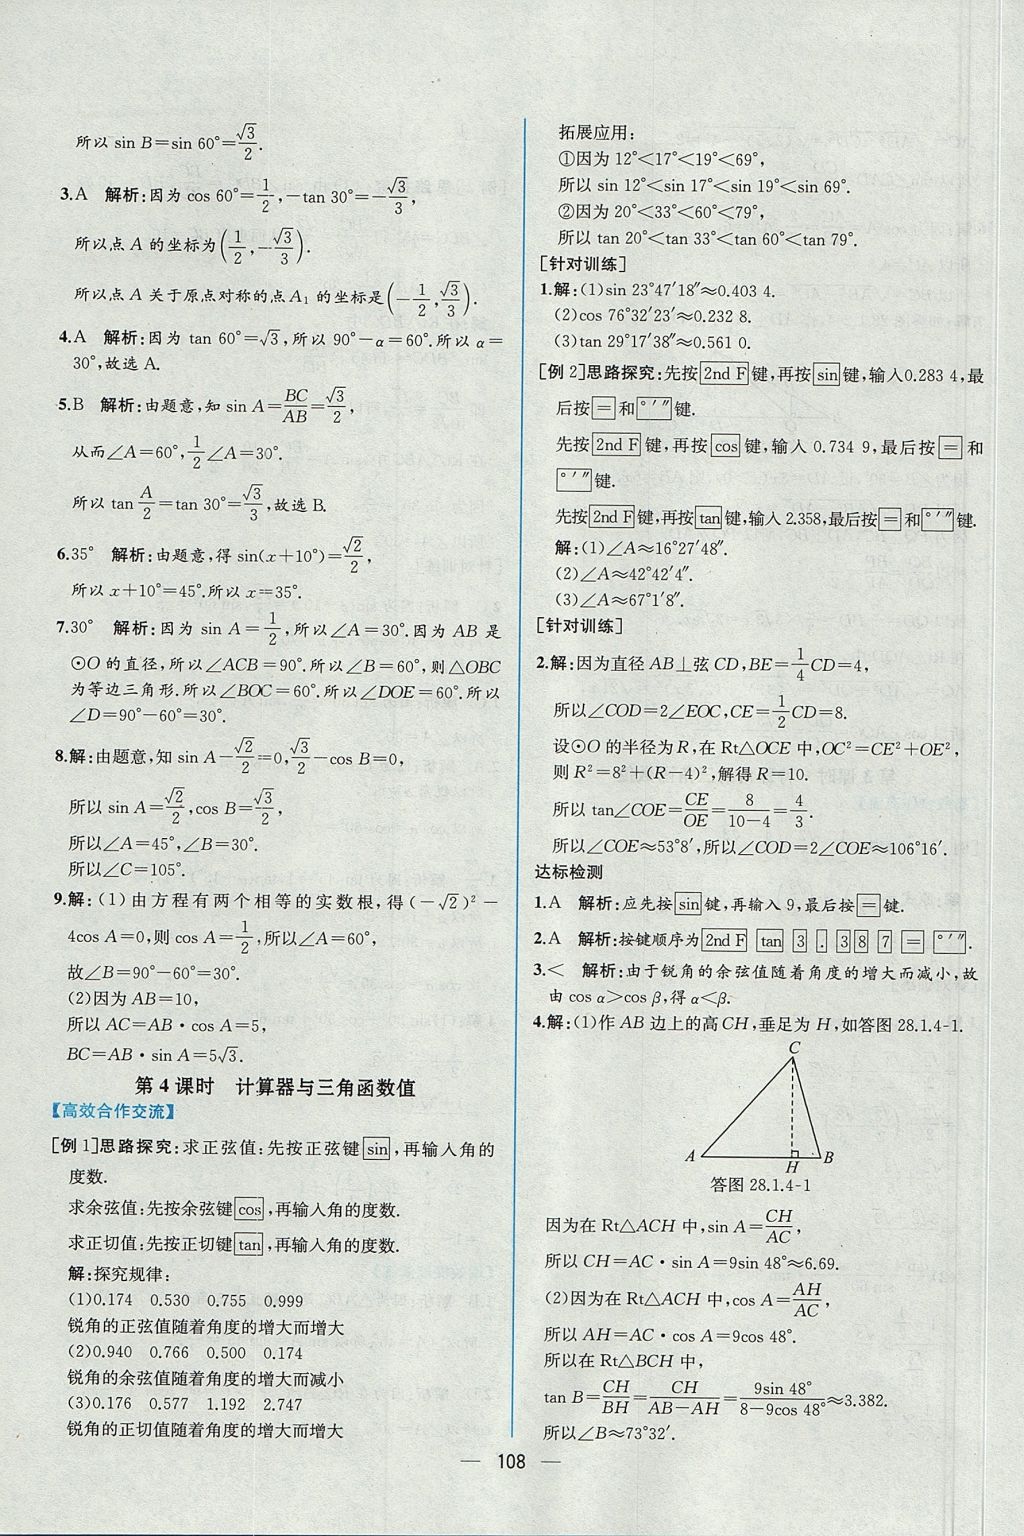 所以 sin B=sin 60°=√3/2.
3.A 解析:因为 cos 60°=1/2,-tan 30°=-√3/3,
所以点 A 的坐标为(1/2,-√3/3).
所以点 A 关于原点对称的点A₁ 的坐标是(-1/2,√3/3).
4.A 解析:因为 tan 60°=√3,所以 90°-α=60°.所以 α=
30°,故选 A.
5.B 解析:由题意,知 sin A=BC/AB=√3/2,
从而∠A=60°,1/2∠A=30°.
所以 tan A/2=tan 30°=√3/3,故选 B.
6.35° 解析:由题意,得 sin(x+10°)=√2/2,
所以 x+10°=45°.所以 x=35°.
7.30° 解析:因为 sin A=1/2,所以∠A=30°.因为 AB 是
⊙O 的直径,所以∠ACB=90°.所以∠B=60°,则△OBC
为等边三角形.所以∠BOC=60°.所以∠DOE=60°.所以
∠D=90°-60°=30°.
8.解:由题意,知 sin A-√2/2=0,√3/2-cos B=0,
所以 sin A=√2/2,cos B=√3/2,
所以∠A=45°,∠B=30°.
所以∠C=105°.
9.解:(1)由方程有两个相等的实数根,得(-√2)²-
4cos A=0,则 cos A=1/2,所以∠A=60°,
故∠B=90°-60°=30°.
(2)因为 AB=10,
所以 AC=AB·cos A=5,
BC=AB·sin A=5√3.
第 4 课时 计算器与三角函数值
【高效合作交流】
[例 1]思路探究:求正弦值:先按正弦键 sin,再输入角的
度数.
求余弦值:先按余弦键 cos,再输入角的度数.
求正切值:先按正切键 tan,再输入角的度数.
解:探究规律:
(1)0.174 0.530 0.755 0.999
锐角的正弦值随着角度的增大而增大
(2)0.940 0.766 0.500 0.174
锐角的余弦值随着角度的增大而减小
(3)0.176 0.577 1.192 2.747
锐角的正切值随着角度的增大而增大
拓展应用:
①因为 12°<17°<19°<69°,
所以 sin 12°<sin 17°<sin 19°<sin 69°.
②因为 20°<33°<60°<79°,
所以 tan 20°<tan 33°<tan 60°<tan 79°.
[针对训练]
1.解:(1)sin 23°47′18″≈0.403 4.
(2)cos 76°32′23′≈0.232 8.
(3)tan 29°17′38″≈0.561 0.
[例 2]思路探究:先按 2nd F 键,再按 sin 键,输入0.283 4,最
后按 = 和 °′″ 键.
先按 2nd F 键,再按 cos 键,输入 0.734 9,最后按 = 和
°′″ 键.
先按 2nd F 键,再按 tan 键,输入 2.358,最后按 = 和 °′″ 键.
解:(1)∠A≈16°27′48″.
(2)∠A≈42°42′4″.
(3)∠A≈67°1′8″.
[针对训练]
2.解:因为直径 AB⊥弦 CD,BE=1/4CD=4,
所以∠COD=2∠EOC,CE=1/2CD=8.
设⊙O 的半径为 R,在 Rt△OCE 中,OC²=CE²+OE²,
则 R²=8²+(R-4)²,解得 R=10.
所以 tan∠COE=CE/OE=8/(10-4)=4/3.
所以∠COE≈53°8′,所以∠COD=2∠COE≈106°16′.
达标检测
1.A 解析:应先按 sin 键,再输入 9,最后按 = 键.
2.A 解析:按键顺序为 2nd F tan 3 . 3 8 7 = °′″.
3.< 解析:由于锐角的余弦值随着角度的增大而减小,故
由 cos α>cos β,得 α<β.
4.解:(1)作 AB 边上的高 CH,垂足为 H,如答图 28.1.4-1.
C
A
H
B
答图 28.1.4-1
因为在 Rt△ACH 中,sin A=CH/AC,
所以 CH=AC·sin A=9sin 48°≈6.69.
(2)因为在 Rt△ACH 中,cos A=AH/AC,
所以 AH=AC·cos A=9cos 48°.
所以在 Rt△BCH 中,
tan B=CH/BH=CH/(AB-AH)=9sin 48°/(8-9cos 48°)≈3.382.
所以∠B≈73°32′.
— 108 —